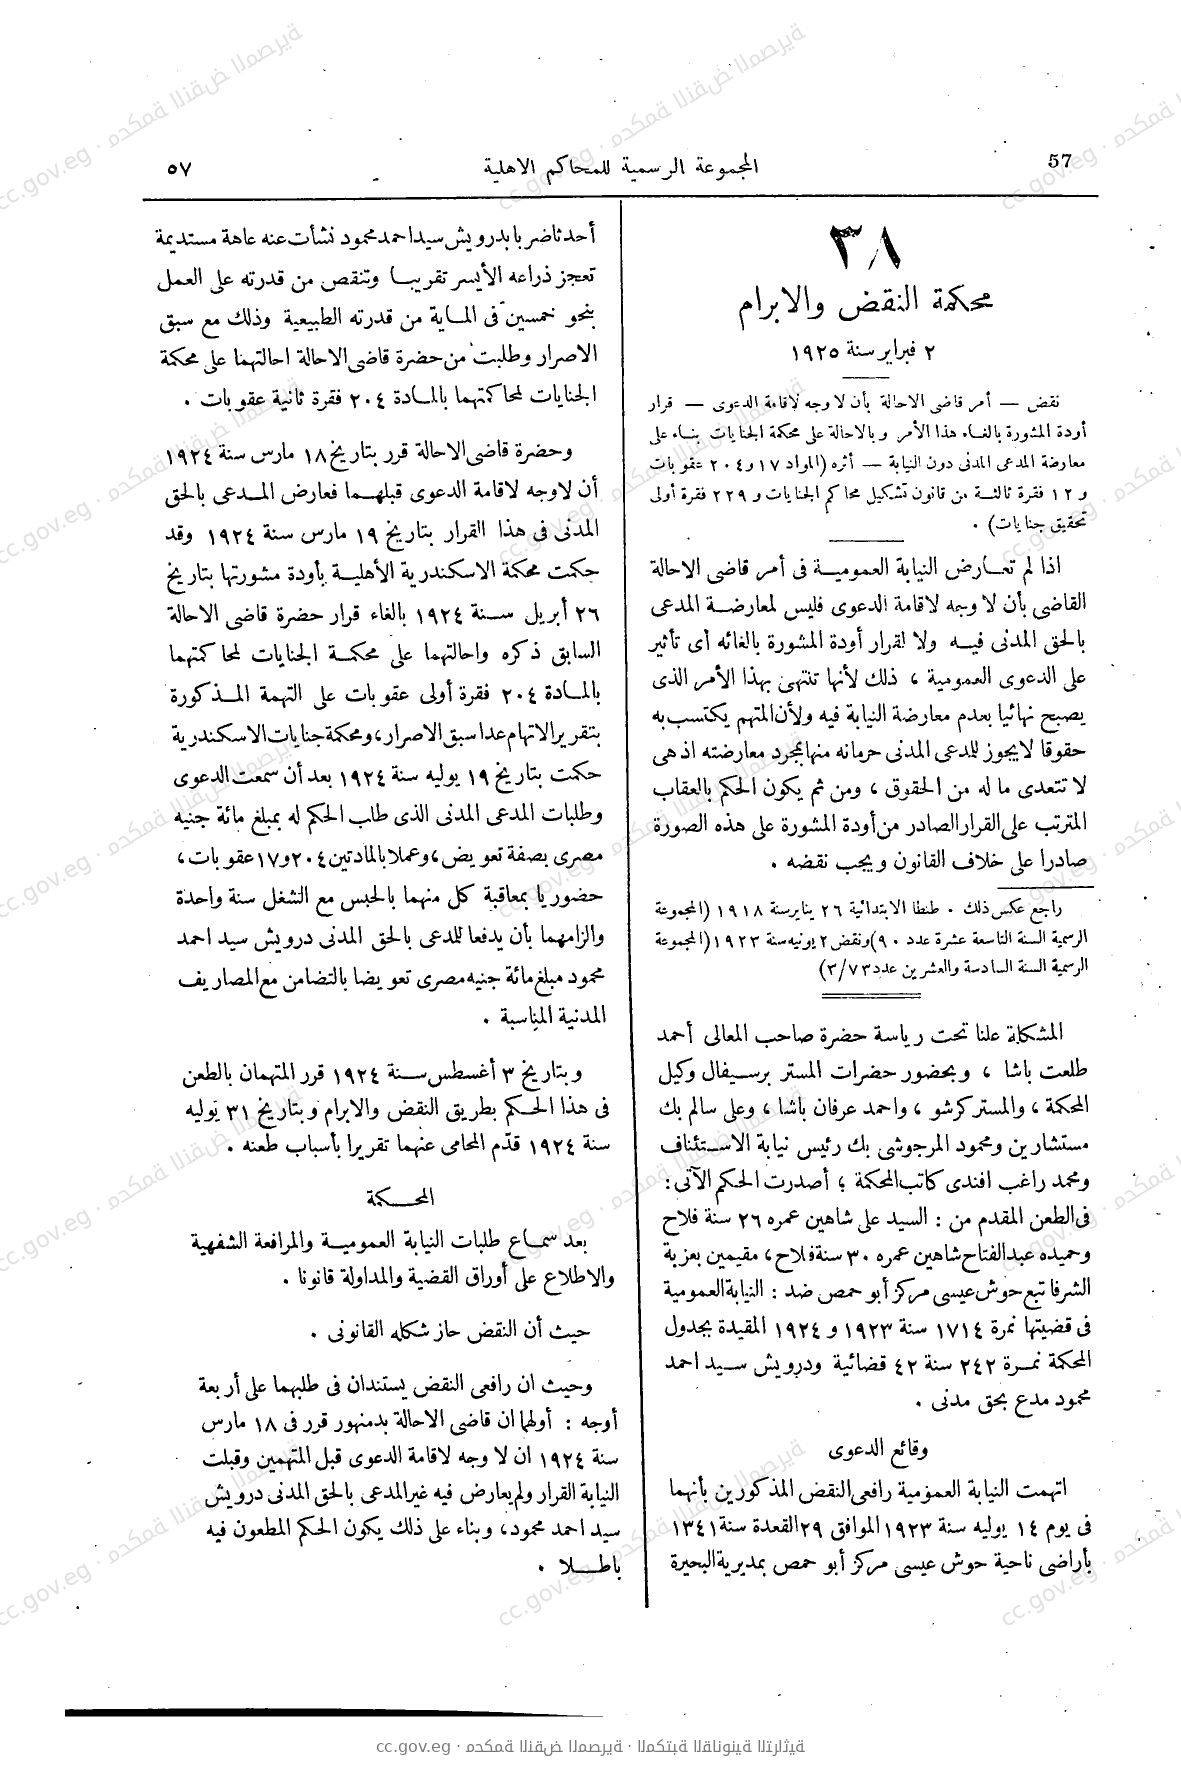 57
المجموعة الرسمية للمحاكم الاهلية
٥٧
٣٨
محكمة النقض والابرام
٢ فبراير سنة ١٩٢٥
نقض — أمر قاضى الاحالة بأن لا وجه لاقامة الدعوى — قرار
أودة المشورة بالغاء هذا الأمر وبالاحالة على محكمة الجنايات بناء على
معارضة المدعى المدنى دون النيابة — أثره (المواد ١٧ و٢٠٤ عقوبات
و ١٢ فقرة ثالثة من قانون تشكيل محاكم الجنايات و ٢٢٩ فقرة أولى
تحقيق جنايات) .
اذا لم تعارض النيابة العمومية فى أمر قاضى الاحالة
القاضى بأن لا وجه لاقامة الدعوى فليس لمعارضة المدعى
بالحق المدنى فيه ولا لقرار أودة المشورة بالغائه أى تأثير
على الدعوى العمومية ، ذلك لأنها تنتهى بهذا الأمر الذى
يصبح نهائيا بعدم معارضة النيابة فيه ولأن المتهم يكتسب به
حقوقا لا يجوز للمدعى المدنى حرمانه منها بمجرد معارضته اذ هى
لا تتعدى ما له من الحقوق ، ومن ثم يكون الحكم بالعقاب
المترتب على القرار الصادر من أودة المشورة على هذه الصورة
صادرا على خلاف القانون ويجب نقضه .
راجع عكس ذلك . طنطا الابتدائية ٢٦ يناير سنة ١٩١٨ (المجموعة
الرسمية السنة التاسعة عشرة عدد ٩٠) ونقض ٢ يونيه سنة ١٩٢٣ (المجموعة
الرسمية السنة السادسة والعشرين عدد ٣/٧٣)
المشكلة علنا تحت رياسة حضرة صاحب المعالى أحمد
طلعت باشا ، وبحضور حضرات المستر برسيفال وكيل
المحكمة ، والمستر كرشو ، واحمد عرفان باشا ، وعلى سالم بك
مستشارين ومحمود المرجوشى بك رئيس نيابة الاستئناف
ومحمد راغب افندى كاتب المحكمة ؛ أصدرت الحكم الآتى :
فى الطعن المقدم من : السيد على شاهين عمره ٢٦ سنة فلاح
وحميده عبد الفتاح شاهين عمره ٣٠ سنة فلاح ، مقيمين بعزبة
الشرفا تبع حوش عيسى مركز أبو حمص ضد : النيابة العمومية
فى قضيتها نمرة ١٧١٤ سنة ١٩٢٣ و ١٩٢٤ المقيدة بجدول
المحكمة نمرة ٢٤٢ سنة ٤٢ قضائية ودرويش سيد احمد
محمود مدع بحق مدنى .
وقائع الدعوى
اتهمت النيابة العمومية رافعى النقض المذكورين بأنهما
فى يوم ١٤ يوليه سنة ١٩٢٣ الموافق ٢٩ القعدة سنة ١٣٤١
بأراضى ناحية حوش عيسى مركز أبو حمص بمديرية البحيرة
أحدثا ضربا بدرويش سيد احمد محمود نشأت عنه عاهة مستديمة
تعجز ذراعه الأيسر تقريبا وتنقص من قدرته على العمل
بنحو خمسين فى الماية من قدرته الطبيعية وذلك مع سبق
الاصرار وطلبت من حضرة قاضى الاحالة احالتهما على محكمة
الجنايات لمحاكمتهما بالمادة ٢٠٤ فقرة ثانية عقوبات .
وحضرة قاضى الاحالة قرر بتاريخ ١٨ مارس سنة ١٩٢٤
أن لا وجه لاقامة الدعوى قبلهما فعارض المدعى بالحق
المدنى فى هذا القرار بتاريخ ١٩ مارس سنة ١٩٢٤ وقد
حكمت محكمة الاسكندرية الأهلية بأودة مشورتها بتاريخ
٢٦ أبريل سنة ١٩٢٤ بالغاء قرار حضرة قاضى الاحالة
السابق ذكره واحالتهما على محكمة الجنايات لمحاكمتهما
بالمادة ٢٠٤ فقرة أولى عقوبات على التهمة المذكورة
بتقرير الاتهام عدا سبق الاصرار ، ومحكمة جنايات الاسكندرية
حكمت بتاريخ ١٩ يوليه سنة ١٩٢٤ بعد أن سمعت الدعوى
وطلبات المدعى المدنى الذى طلب الحكم له بمبلغ مائة جنيه
مصرى بصفة تعويض ، وعملا بالمادتين ٢٠٤ و١٧ عقوبات ،
حضوريا بمعاقبة كل منهما بالحبس مع الشغل سنة واحدة
والزامهما بأن يدفعا للمدعى بالحق المدنى درويش سيد احمد
محمود مبلغ مائة جنيه مصرى تعويضا بالتضامن مع المصاريف
المدنية المناسبة .
وبتاريخ ٣ أغسطس سنة ١٩٢٤ قرر المتهمان بالطعن
فى هذا الحكم بطريق النقض والابرام وبتاريخ ٣١ يوليه
سنة ١٩٢٤ قدّم المحامى عنهما تقريرا بأسباب طعنه .
المحكمة
بعد سماع طلبات النيابة العمومية والمرافعة الشفهية
والاطلاع على أوراق القضية والمداولة قانونا .
حيث أن النقض حاز شكله القانونى .
وحيث ان رافعى النقض يستندان فى طلبهما على أربعة
أوجه : أولها ان قاضى الاحالة بدمنهور قرر فى ١٨ مارس
سنة ١٩٢٤ ان لا وجه لاقامة الدعوى قبل المتهمين وقبلت
النيابة القرار ولم يعارض فيه غير المدعى بالحق المدنى درويش
سيد احمد محمود ، وبناء على ذلك يكون الحكم المطعون فيه
باطلا .
cc.gov.eg · محكمة النقض المصرية · المكتبة القانونية التراثية